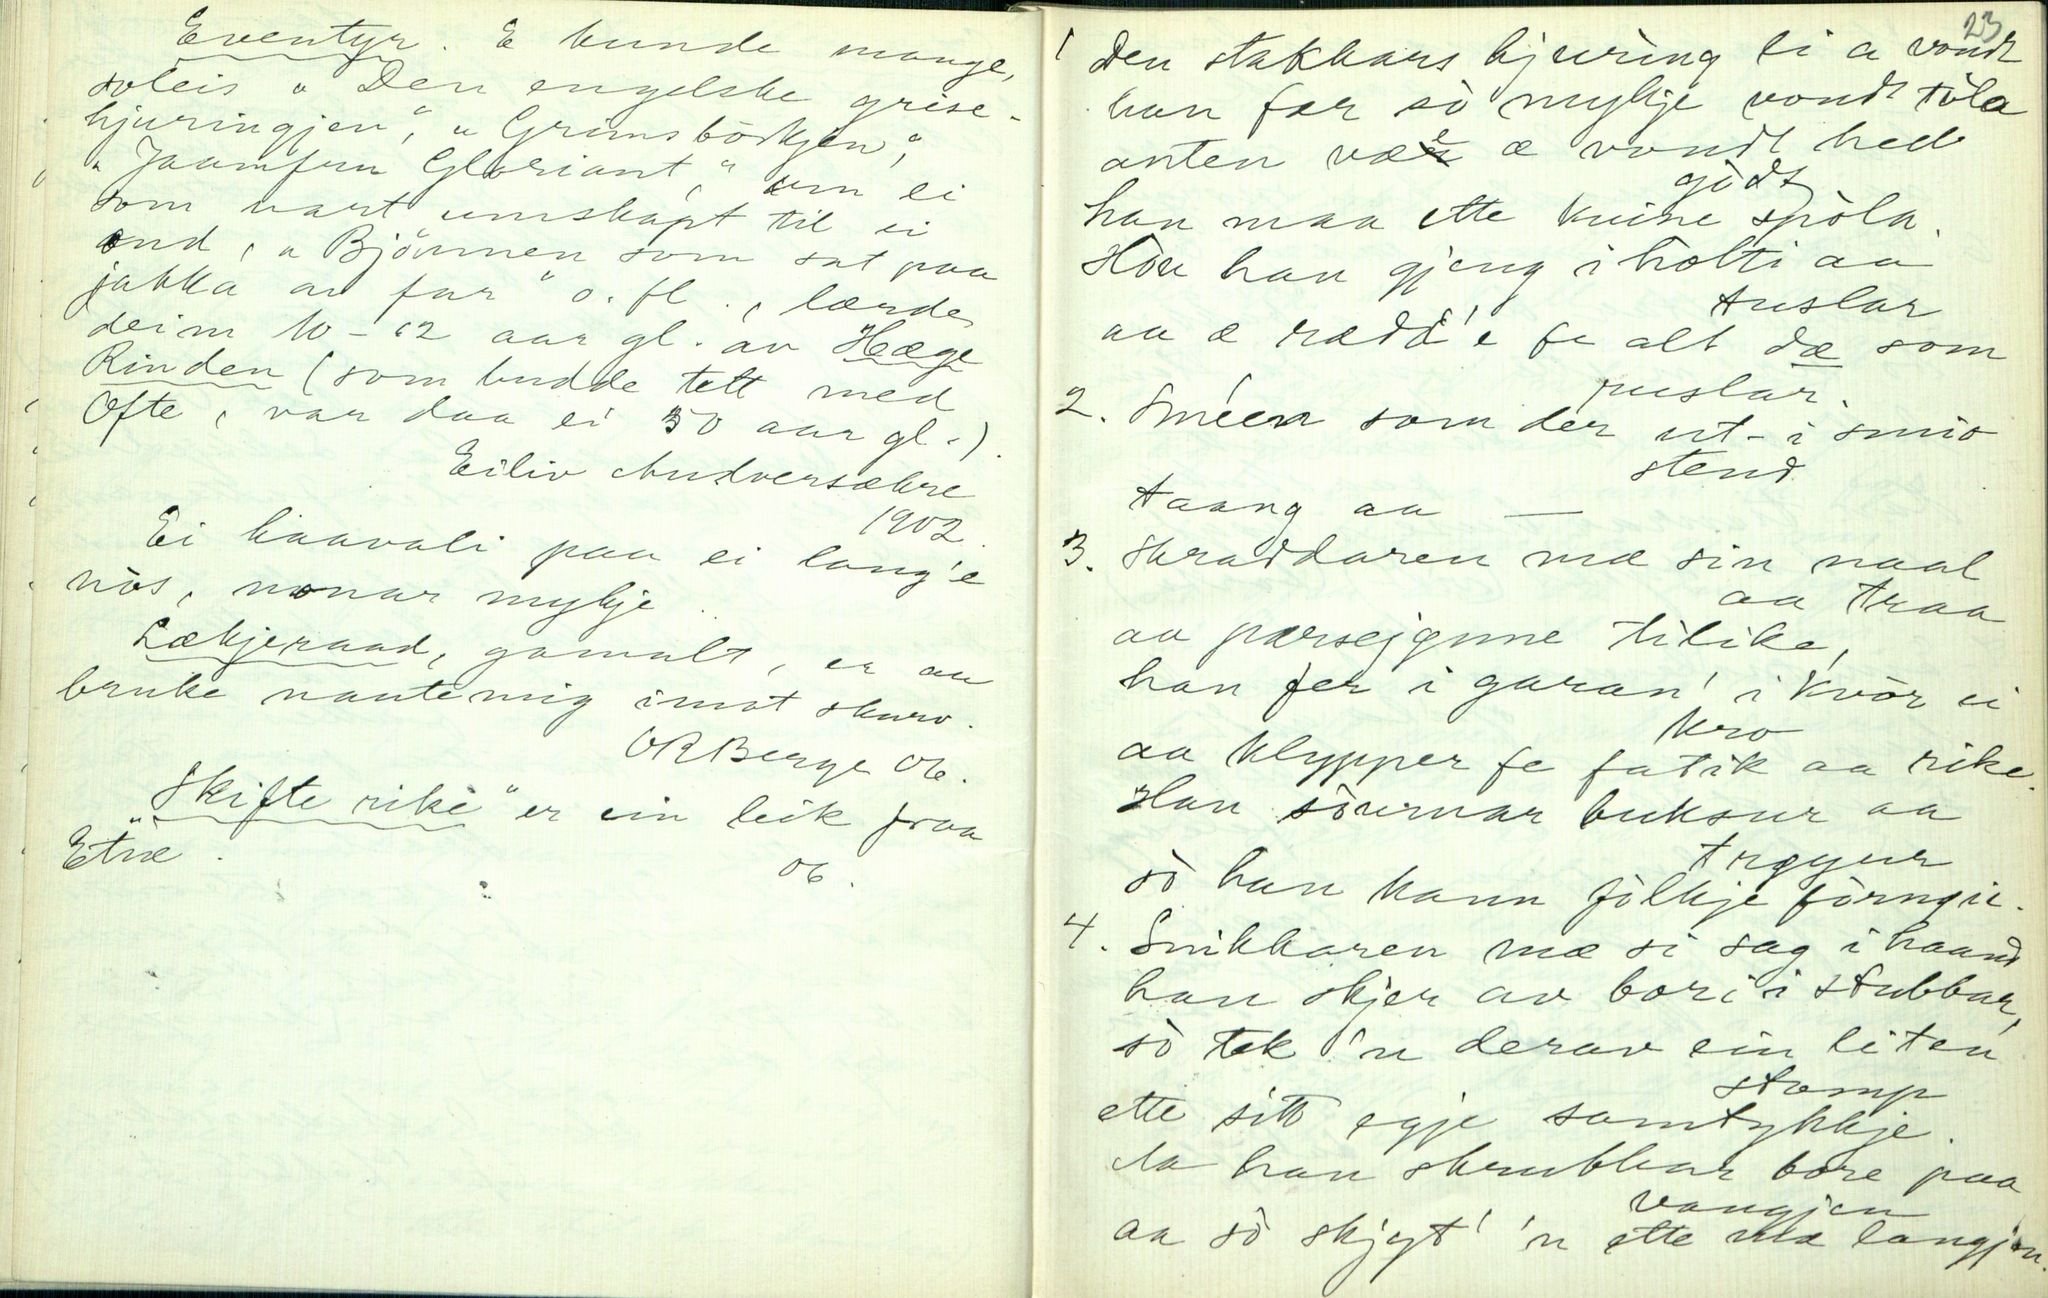 Eventyr. E kunde mange,
soleis „Den engelske grise-
hjuringjen", „Grimsborkjen",
„Jaamfru Gloriant," um ei
som vart umskapt til ei
and, „Bjönnen som sat paa
jakka an far" o. fl., lærde
deim 10-12 aar gl. av Hæge
Rinden (som budde tett med
Ofte, var daa ei 50 aar gl.).
Eiliv Andversækre
1902.
Ei kaavali paa ei lang'e
nòs, monar mykje.
Lækjeraad, gamalt, er aa
bruke nautemig imot skurv.
ORBerge 06.
„Skifte rike" er ein leik fraa
Etne.
06.
23
1 Den stakkars hjuring li a vondt
han fær sò mykje vondt tòla
anten væ'e æ vondt hed
godt
han maa ette kuine spòla.
Hòr han gjeng i holti aa
tuslar
aa æ rædd'e fe alt dæ som
ruslar.
2. Smeen som der ut-i smio
stend
taang aa —
3. Skraddaren mæ sin naal
aa traa
aa pærsejønne tilike,
han fer i garan' i kvòr ei
kro
aa klypper fe fatik aa rike.
Han sòumar buksur aa
trøyur
sò han kann fòlkje fòrnøie.
4. Snikkaren mæ si sag i haand
han skjer av bori i stubbar,
sò tek 'n derav ein liten
stomp
ette sitt egje samtykkje.
Aa han skrubbar bore paa
vangjen
aa sò skjøt' 'n ette mæ langjøn.